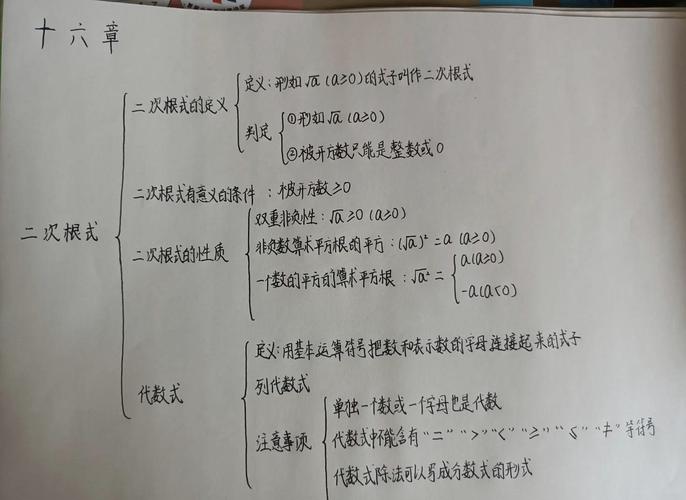 十六章
定义：形如√a (a≥0)的式子叫作二次根式
二次根式的定义
判定
①形如√a (a≥0)
②被开方数只能是整数或0
二次根式有意义的条件：被开方数≥0
二次根式
二次根式的性质
双重非负性：√a≥0 (a≥0)
非负数算术平方根的平方：(√a)²=a (a≥0)
一个数的平方的算术平方根：√a²=
a(a≥0)
-a(a<0)
代数式
定义：用基本运算符号把数和表示数的字母连接起来的式子
列代数式
注意事项
单独一个数或一个字母也是代数
代数式中不能含有“=”“>”“<”“≥”“≤”“≠”等符号
代数式除法可以写成分数式的形式